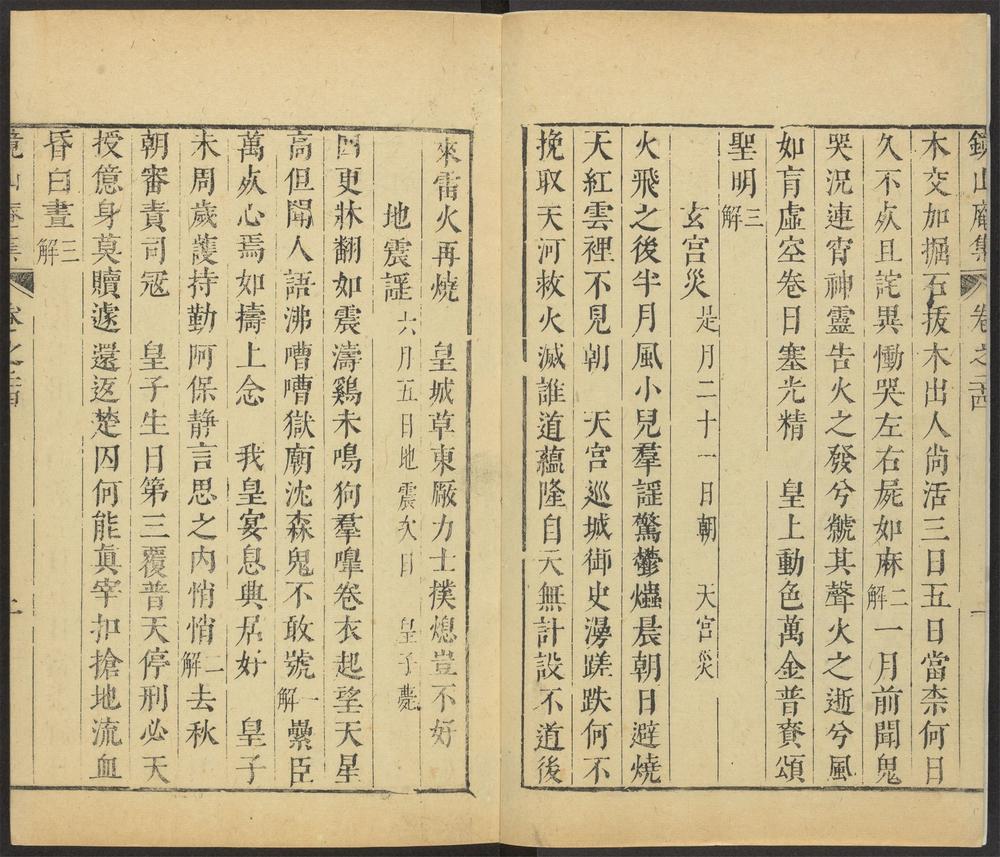 鏡山庵集 卷之二十四 一
木交加掘石拔木出人尚活三日五日當柰何日
久不歹且詫異慟哭左右屍如麻二解一月前聞鬼
哭況連宵神靈告火之發兮虩其聲火之逝兮風
如肓虛空卷日塞光精　皇上動色萬金普賚頌
聖明三解
玄宮災是月二十一日朝　天宮災
火飛之後半月風小兒羣謡驚鬱爞晨朝日避燒
天紅雲裡不見朝　天宮巡城御史漫蹉跌何不
挽取天河救火滅誰道蘊隆自天無計設不道後
來雷火再燒　皇城草東厰力士撲熄豈不好
地震謡六月五日地震次日　皇子薨
四更牀翻如震濤鷄未鳴狗羣嘷卷衣起望天星
高但聞人語沸嘈嘈獄廟沈森鬼不敢號一解纍臣
萬歹心焉如擣上念　我皇宴息興居好　皇子
未周歲護持勤阿保静言思之內悄悄二解去秋
朝審責司冦　皇子生日第三覆普天停刑必天
授億身莫贖遽還返楚囚何能眞宰扣搶地流血
昏白晝三解
鏡山庵集 卷之二十四 二